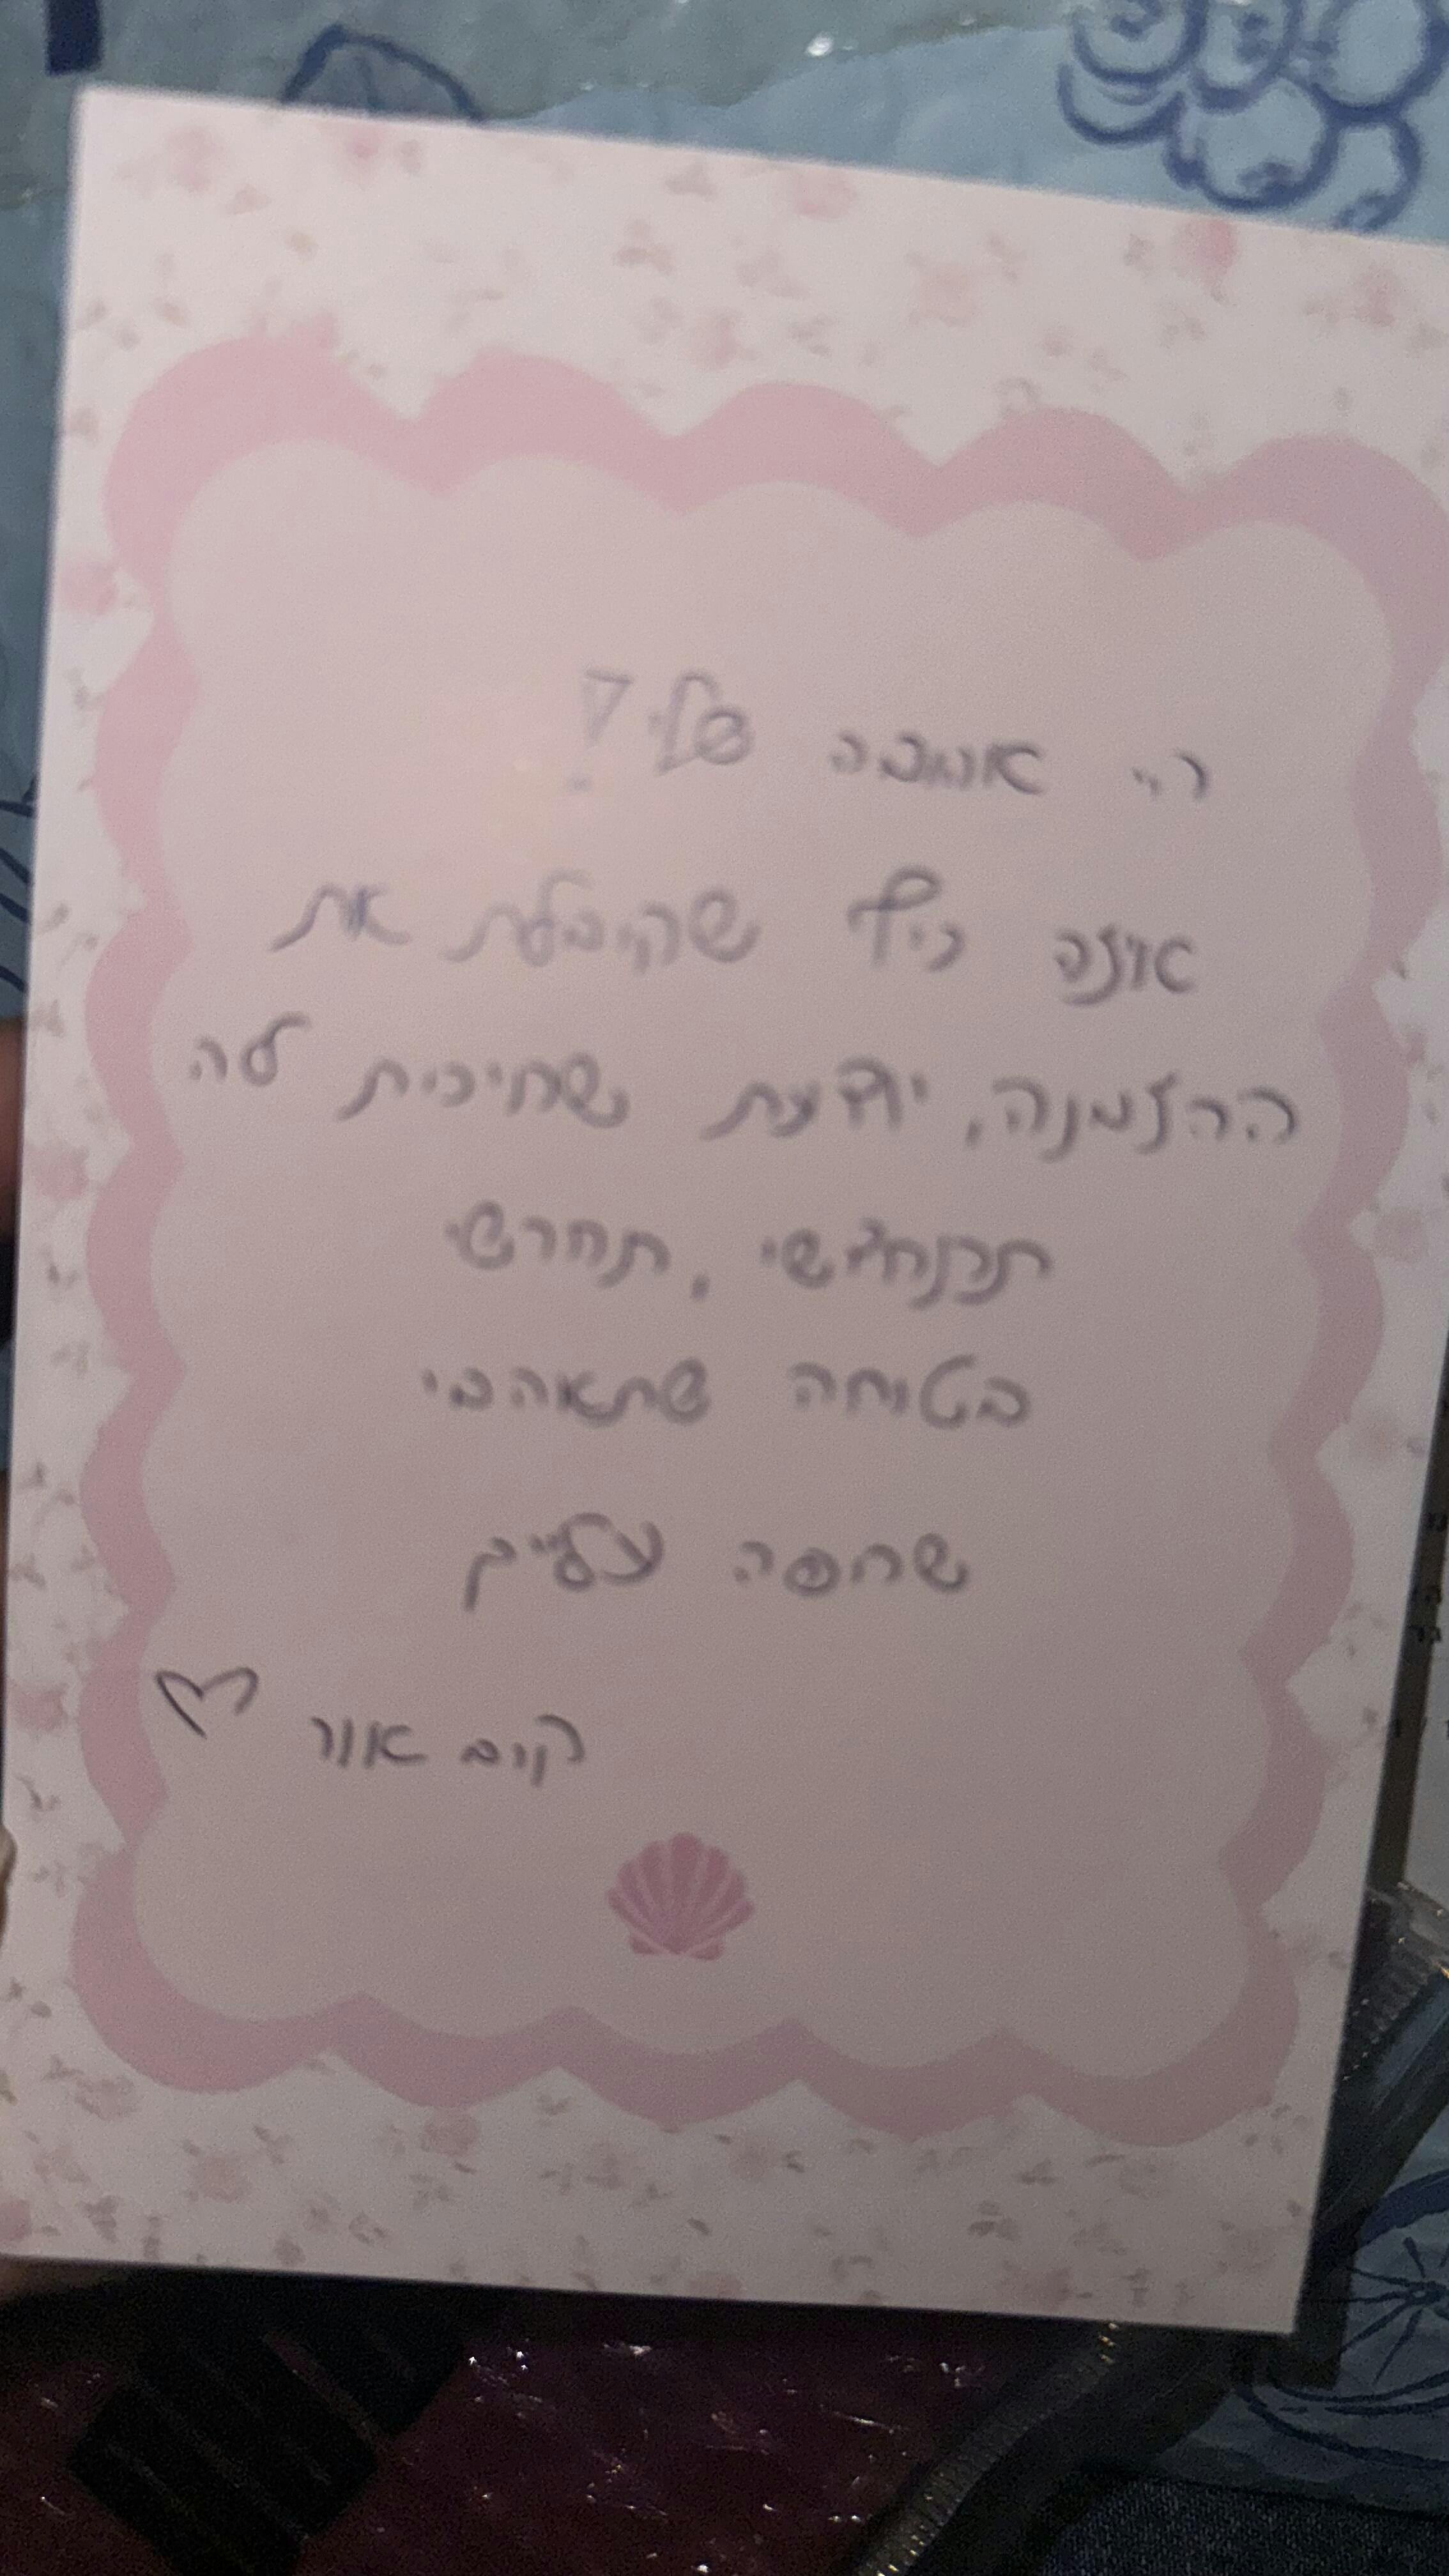 היי אהובה שלי!
איזה כיף שקיבלת את
ההזמנה, יודעת שחיכית לה
תתחדשי, תחרשי
בטוחה שתאהבי
שחפה עלייך
קוים אור ♡